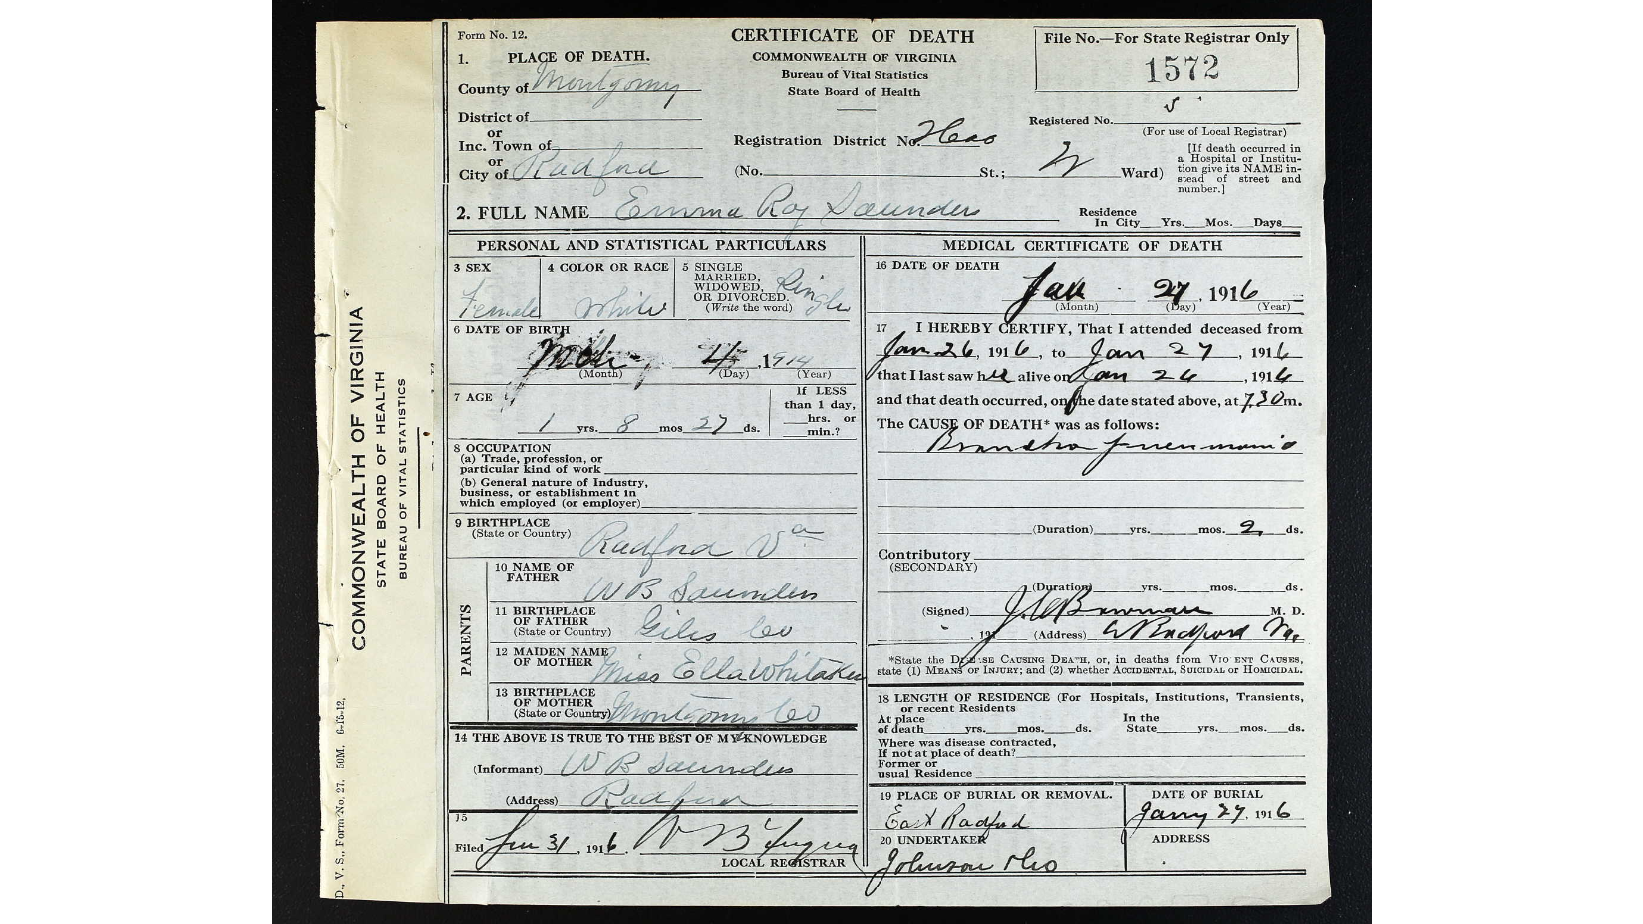 Form No. 12.
CERTIFICATE OF DEATH
COMMONWEALTH OF VIRGINIA
Bureau of Vital Statistics
State Board of Health
File No.—For State Registrar Only
1572
1. PLACE OF DEATH.
County of Montgomy
District of
or
Inc. Town of
or
City of Radford
Registration District No.
(No. St.; W Ward)
Registered No.
(For use of Local Registrar)
[If death occurred in
a Hospital or Institu-
tion give its NAME in-
stead of street and
number.]
2. FULL NAME Emma Roy Saunders
Residence
In City Yrs. Mos. Days
PERSONAL AND STATISTICAL PARTICULARS
3 SEX
Female
4 COLOR OR RACE
White
5 SINGLE
MARRIED,
WIDOWED,
OR DIVORCED.
(Write the word)
Single
6 DATE OF BIRTH
Mch 1914
(Month) (Day) (Year)
7 AGE
1 yrs. 8 mos 27 ds.
If LESS
than 1 day,
hrs. or
min.?
8 OCCUPATION
(a) Trade, profession, or
particular kind of work
(b) General nature of Industry,
business, or establishment in
which employed (or employer)
9 BIRTHPLACE
(State or Country)
Radford Va
PARENTS
10 NAME OF
FATHER
W B Saunders
11 BIRTHPLACE
OF FATHER
(State or Country)
Giles Co
12 MAIDEN NAME
OF MOTHER
Miss Ella Whitaker
13 BIRTHPLACE
OF MOTHER
(State or Country)
Montgomy Co
14 THE ABOVE IS TRUE TO THE BEST OF MY KNOWLEDGE
(Informant) W B Saunders
(Address) Radford
15
Filed Jan 31, 1916.
LOCAL REGISTRAR
MEDICAL CERTIFICATE OF DEATH
16 DATE OF DEATH
Jan 27, 1916
(Month) (Day) (Year)
17 I HEREBY CERTIFY, That I attended deceased from
Jan 26, 1916, to Jan 27, 1916
that I last saw her alive on Jan 26, 1916
and that death occurred, on the date stated above, at 7.30 m.
The CAUSE OF DEATH* was as follows:
Broncho pneumonia
(Duration) yrs. mos. 2 ds.
Contributory
(SECONDARY)
(Duration) yrs. mos. ds.
(Signed) Bowman M. D.
, 191 (Address) E Radford Va.
*State the DISEASE CAUSING DEATH, or, in deaths from VIOLENT CAUSES,
state (1) MEANS OF INJURY; and (2) whether ACCIDENTAL, SUICIDAL or HOMICIDAL.
18 LENGTH OF RESIDENCE (For Hospitals, Institutions, Transients,
or recent Residents
At place In the
of death yrs. mos. ds. State yrs. mos. ds.
Where was disease contracted,
If not at place of death?
Former or
usual Residence
19 PLACE OF BURIAL OR REMOVAL.
East Radford
DATE OF BURIAL
Jany 27, 1916
20 UNDERTAKER
Johnson
ADDRESS
COMMONWEALTH OF VIRGINIA
STATE BOARD OF HEALTH
BUREAU OF VITAL STATISTICS
D., V. S., Form No. 27. 50M. 6-15-12.